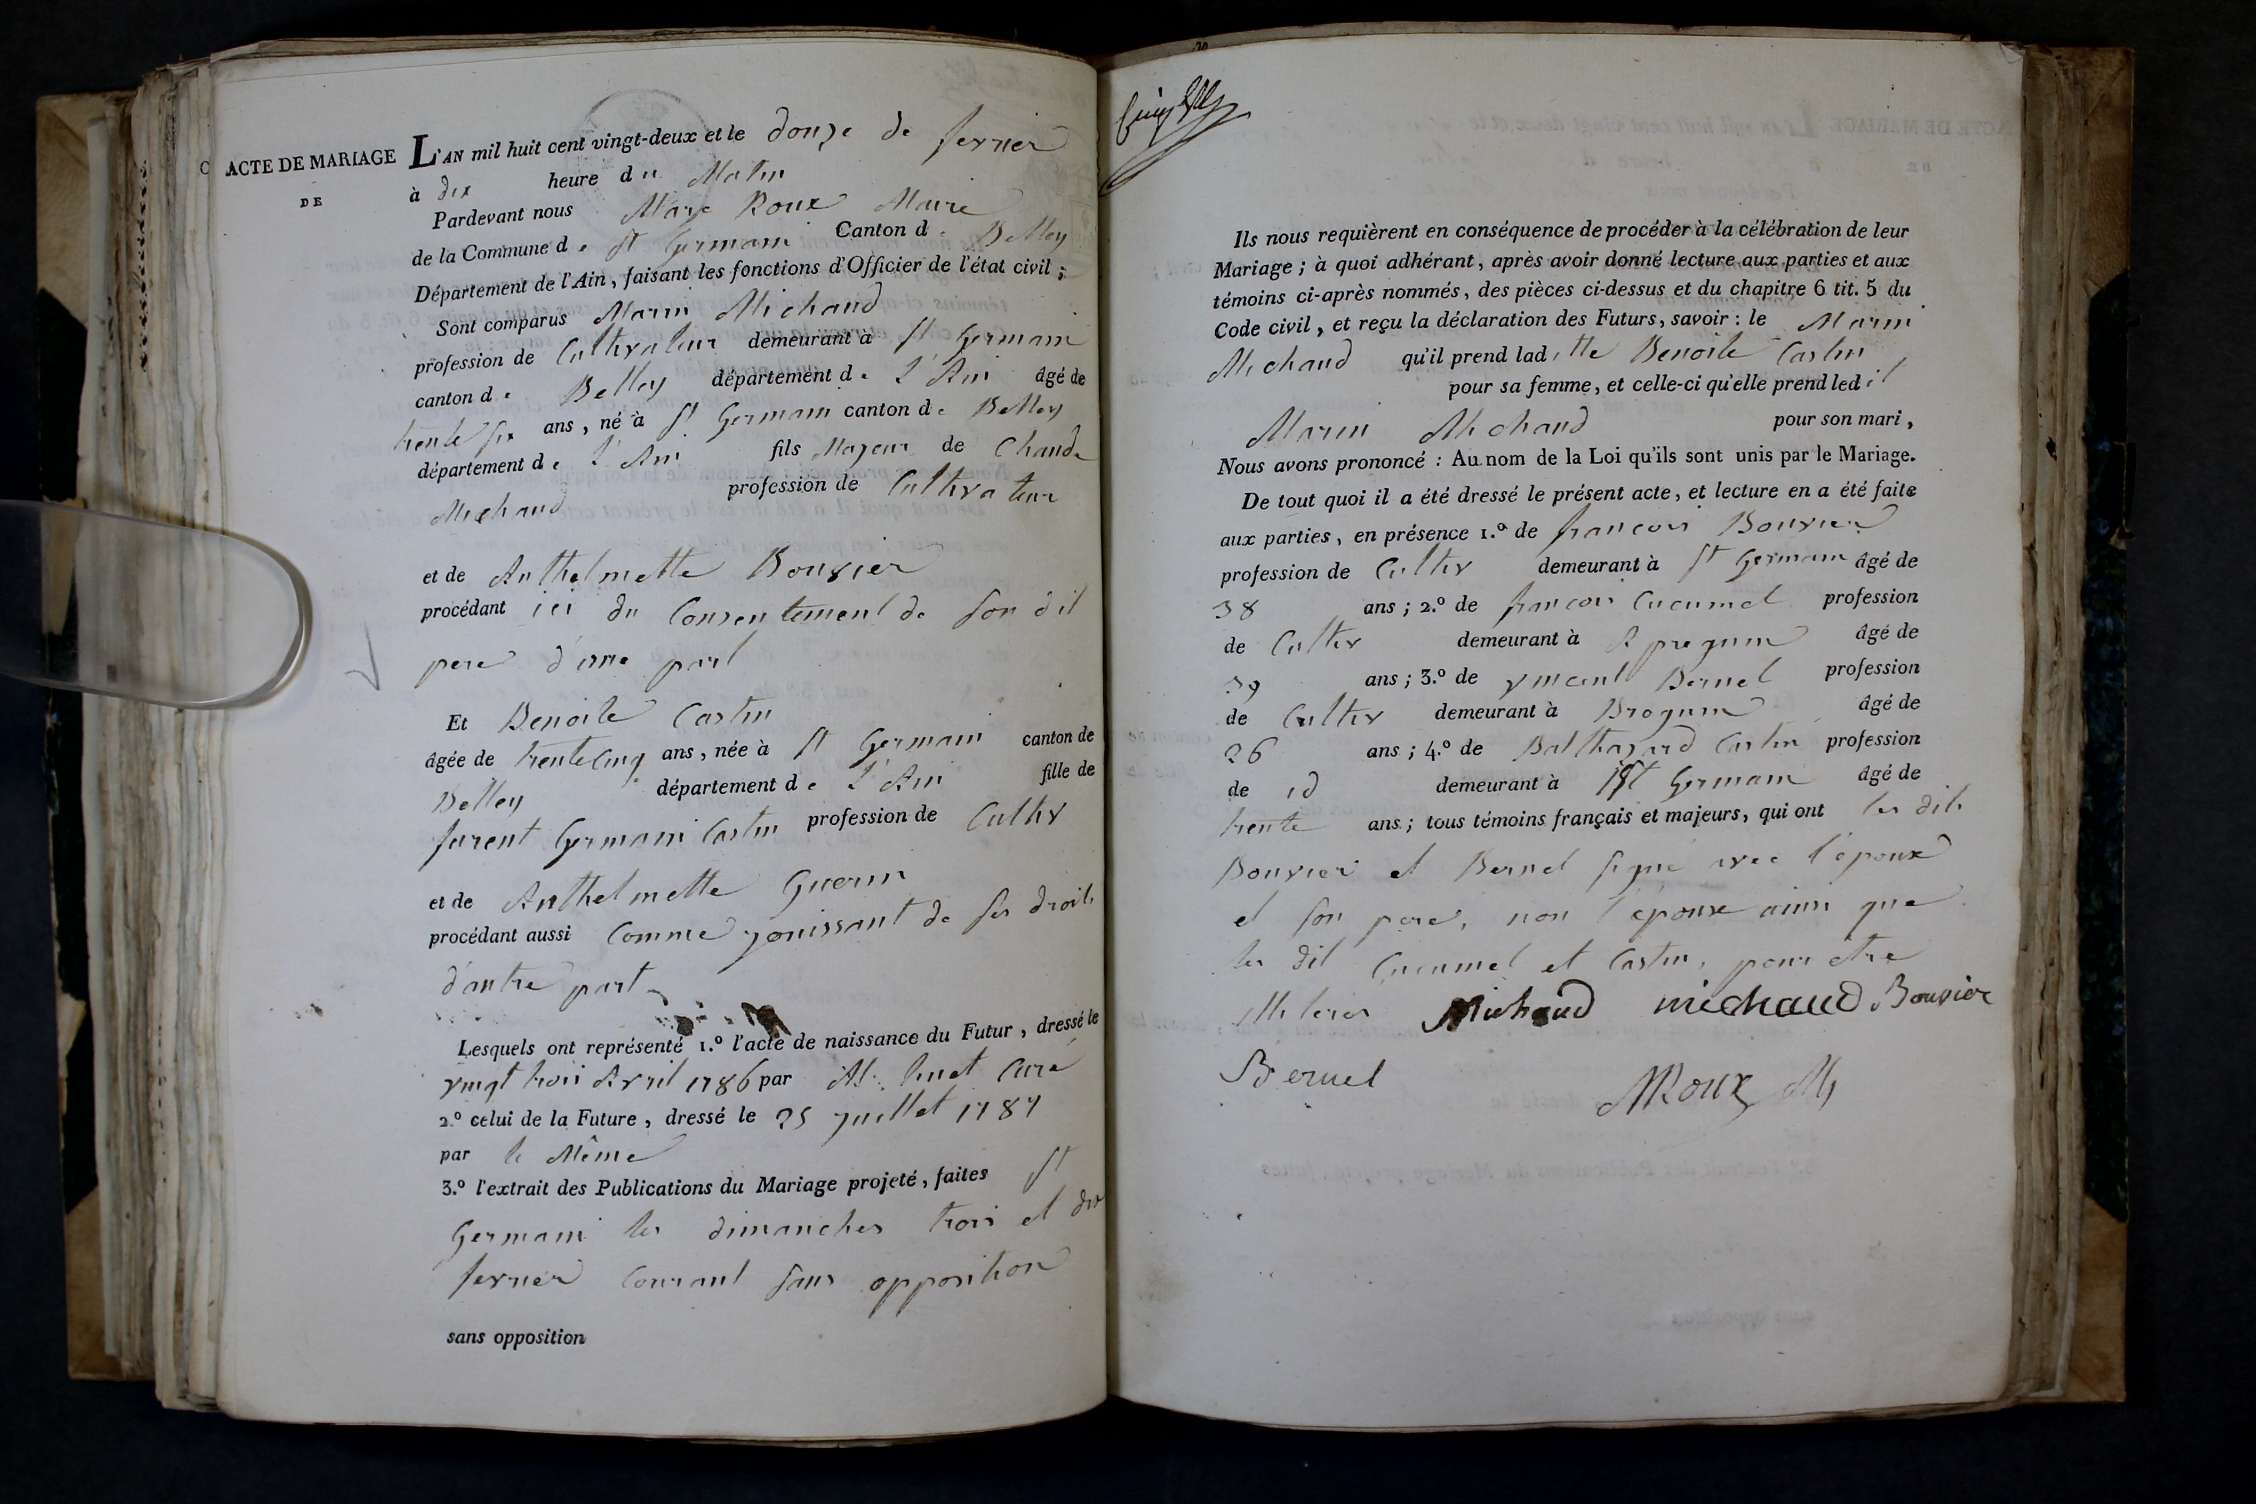 ACTE DE MARIAGE
DE
L'AN mil huit cent vingt-deux et le donze de fevrier
à dix heure du Matin
Pardevant nous Marc Roux Maire
de la Commune de St Germain Canton de Belley
Département de l'Ain, faisant les fonctions d'Officier de l'état civil ;
Sont comparus Marin Michaud
profession de Cultivateur demeurant à St Germain
canton de Belley département de l'Ain âgé de
trente six ans, né à St Germain canton de Belley
département de l'Ain fils Majeur de Claude
Michaud profession de Cultivateur
et de Anthelmette Bouvier
procédant ici du Consentement de son dit
pere d'une part
Et Benoite Castin
âgée de trente Cinq ans, née à St Germain canton de
Belley département de l'Ain fille de
furent Germain Castin profession de Cultiv
et de Anthelmette Guerin
procédant aussi Comme jouissant de ses droits
d'autre part
Lesquels ont représenté 1.º l'acte de naissance du Futur, dressé le
vingt trois Avril 1786 par Curé
2.º celui de la Future, dressé le 25 juillet 1787
par le Même
3.º l'extrait des Publications du Mariage projeté, faites St
Germain les dimanches trois et dix
fevrier Courant sans opposition
sans opposition
Ils nous requièrent en conséquence de procéder à la célébration de leur
Mariage ; à quoi adhérant, après avoir donné lecture aux parties et aux
témoins ci-après nommés, des pièces ci-dessus et du chapitre 6 tit. 5 du
Code civil, et reçu la déclaration des Futurs, savoir : le Marin
Michaud qu'il prend laditte Benoite Castin
pour sa femme, et celle-ci qu'elle prend ledit
Marin Michaud pour son mari,
Nous avons prononcé : Au nom de la Loi qu'ils sont unis par le Mariage.
De tout quoi il a été dressé le présent acte, et lecture en a été faite
aux parties, en présence 1.º de francois Bouvier
profession de Cultiv demeurant à St Germain âgé de
38 ans ; 2.º de francois Cucumel profession
de Cultiv demeurant à âgé de
39 ans ; 3.º de vincent Bernel profession
de Cultiv demeurant à Brognin âgé de
26 ans ; 4.º de Balthazard Castin profession
de id demeurant à St Germain âgé de
trente ans ; tous témoins français et majeurs, qui ont les dits
Bouvier et Bernel signé avec l'époux
et son pere, non l'épouse ainsi que
les dit Cucumel et Castin, pour etre
illeteres Michaud michaud Bouvier
Bernel MRoux M